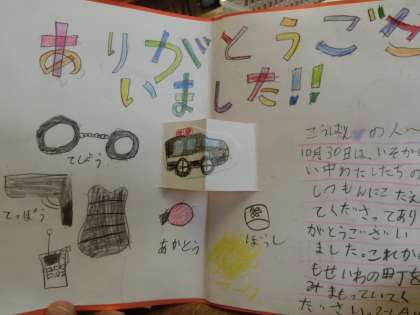 ありがとうござ
いました!!
てじょう
てっぽう
あかとう
ぼうし
こうばんの人へ
10月30日は、いそがし
い中わたしたちの
しつもんにこたえ
てくださってあり
がとうござい
ました。これから
もせいわの町を
みまもっていてく
ださい。